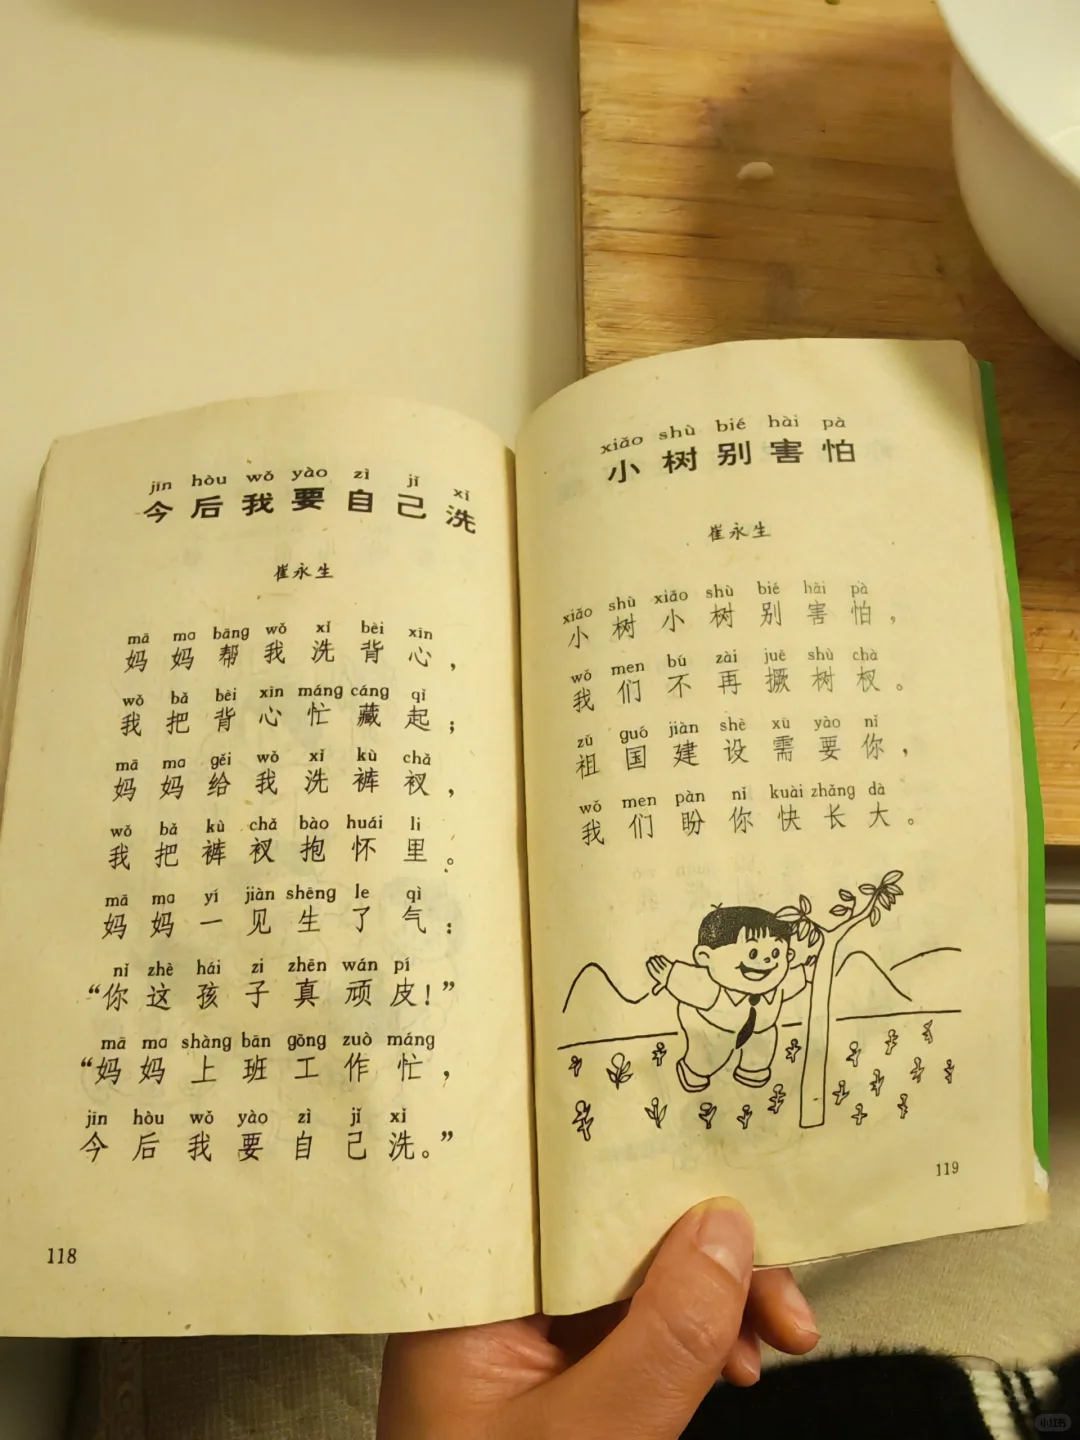 jīn hòu wǒ yào zì jǐ xǐ
今后我要自己洗
崔永生
mā ma bāng wǒ xǐ bèi xīn
妈妈帮我洗背心，
wǒ bǎ bèi xīn máng cáng qǐ
我把背心忙藏起；
mā ma gěi wǒ xǐ kù chǎ
妈妈给我洗裤衩，
wǒ bǎ kù chǎ bào huái li
我把裤衩抱怀里。
mā ma yí jiàn shēng le qì
妈妈一见生了气：
nǐ zhè hái zi zhēn wán pí
“你这孩子真顽皮！”
mā ma shàng bān gōng zuò máng
“妈妈上班工作忙，
jīn hòu wǒ yào zì jǐ xǐ
今后我要自己洗。”
118
xiǎo shù bié hài pà
小树别害怕
崔永生
xiǎo shù xiǎo shù bié hài pà
小树小树别害怕，
wǒ men bú zài juē shù chà
我们不再撅树杈。
zǔ guó jiàn shè xū yào nǐ
祖国建设需要你，
wǒ men pàn nǐ kuài zhǎng dà
我们盼你快长大。
119